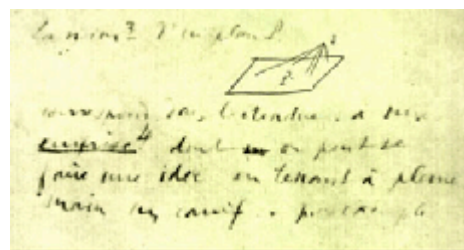 La vision? d'un plan P
correspond dans l'étendue, à une
emprise 4 dont on peut se
faire une idée en tenant à pleine
main un canif, par exemple